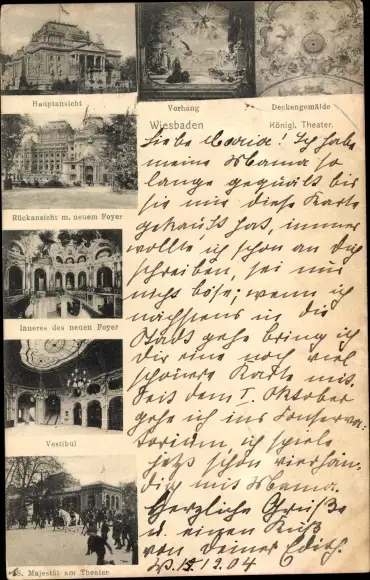 Hauptansicht
Vorhang
Deckengemälde
Wiesbaden
Königl. Theater.
Rückansicht m. neuem Foyer
Inneres des neuen Foyer
Vestibul
S. Majestät am Theater
Liebe Maria! Ich habe
meine Mama so
lange gequält bis
sie mir diese Karte
gekauft hat, immer
wollte ich schon an dich
schreiben, sei mir
nicht böse; wenn ich
nächstens in die
Stadt gehe bring ich
dir eine noch viel
schönere Karte mit.
Seit dem 1. Oktober
gehe ich ins Conserva-
torium, ich spiele
jetzt schon vierhän-
dig mit Mama.
Herzliche Grüße
u. einen Kuß
von deiner Edith.
12.04